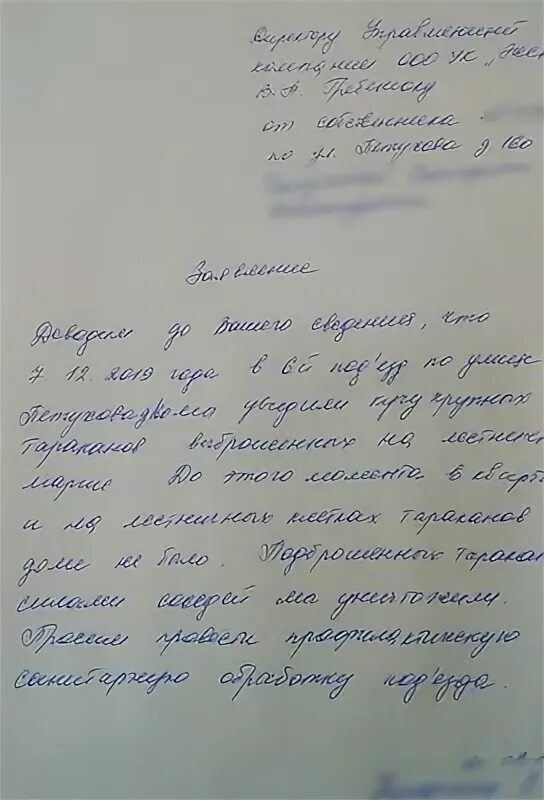 Директору Управляющей
компании ООО УК „Жес
В.А. Гребенюку
от собственника
по ул. Петухова д 160
Заявление
Доводим до Вашего сведения, что
7 12. 2019 года в 6й под'езд по улице
Петухова мы увидили кучу крупных
тараканов выброшенных на лестничн
марше До этого момента в кварти
и на лестничных клетках тараканов
доме не было. Подброшенных таракан
силами соседей мы уничтожили.
Просим провести профилактическую
санитарную обработку под'езда.